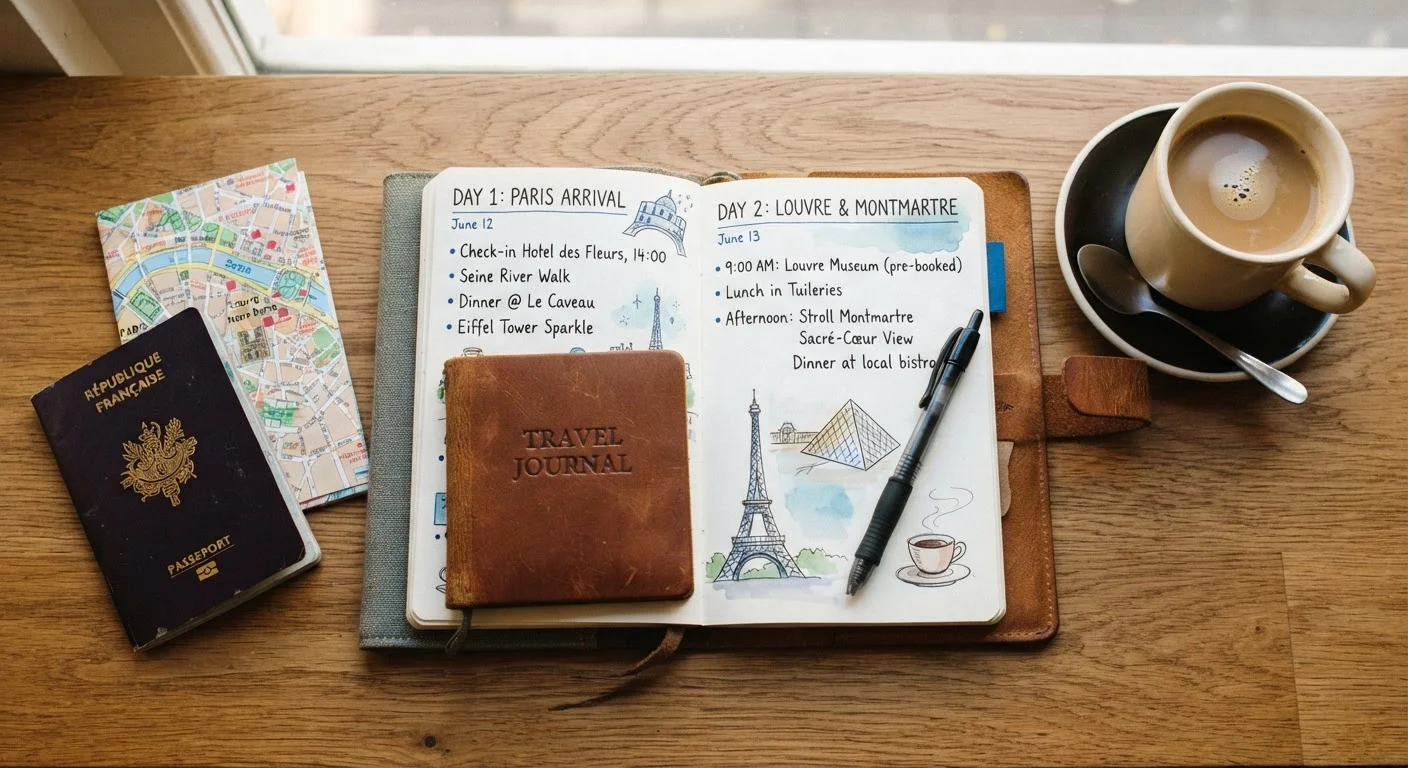 DAY 1: PARIS ARRIVAL
June 12
• Check-in Hotel des Fleurs, 14:00
• Seine River Walk
• Dinner @ Le Caveau
• Eiffel Tower Sparkle
DAY 2: LOUVRE & MONTMARTRE
June 13
• 9:00 AM: Louvre Museum (pre-booked)
• Lunch in Tuileries
• Afternoon: Stroll Montmartre
Sacré-Cœur View
Dinner at local bistro
TRAVEL
JOURNAL
RÉPUBLIQUE
FRANÇAISE
PASSEPORT